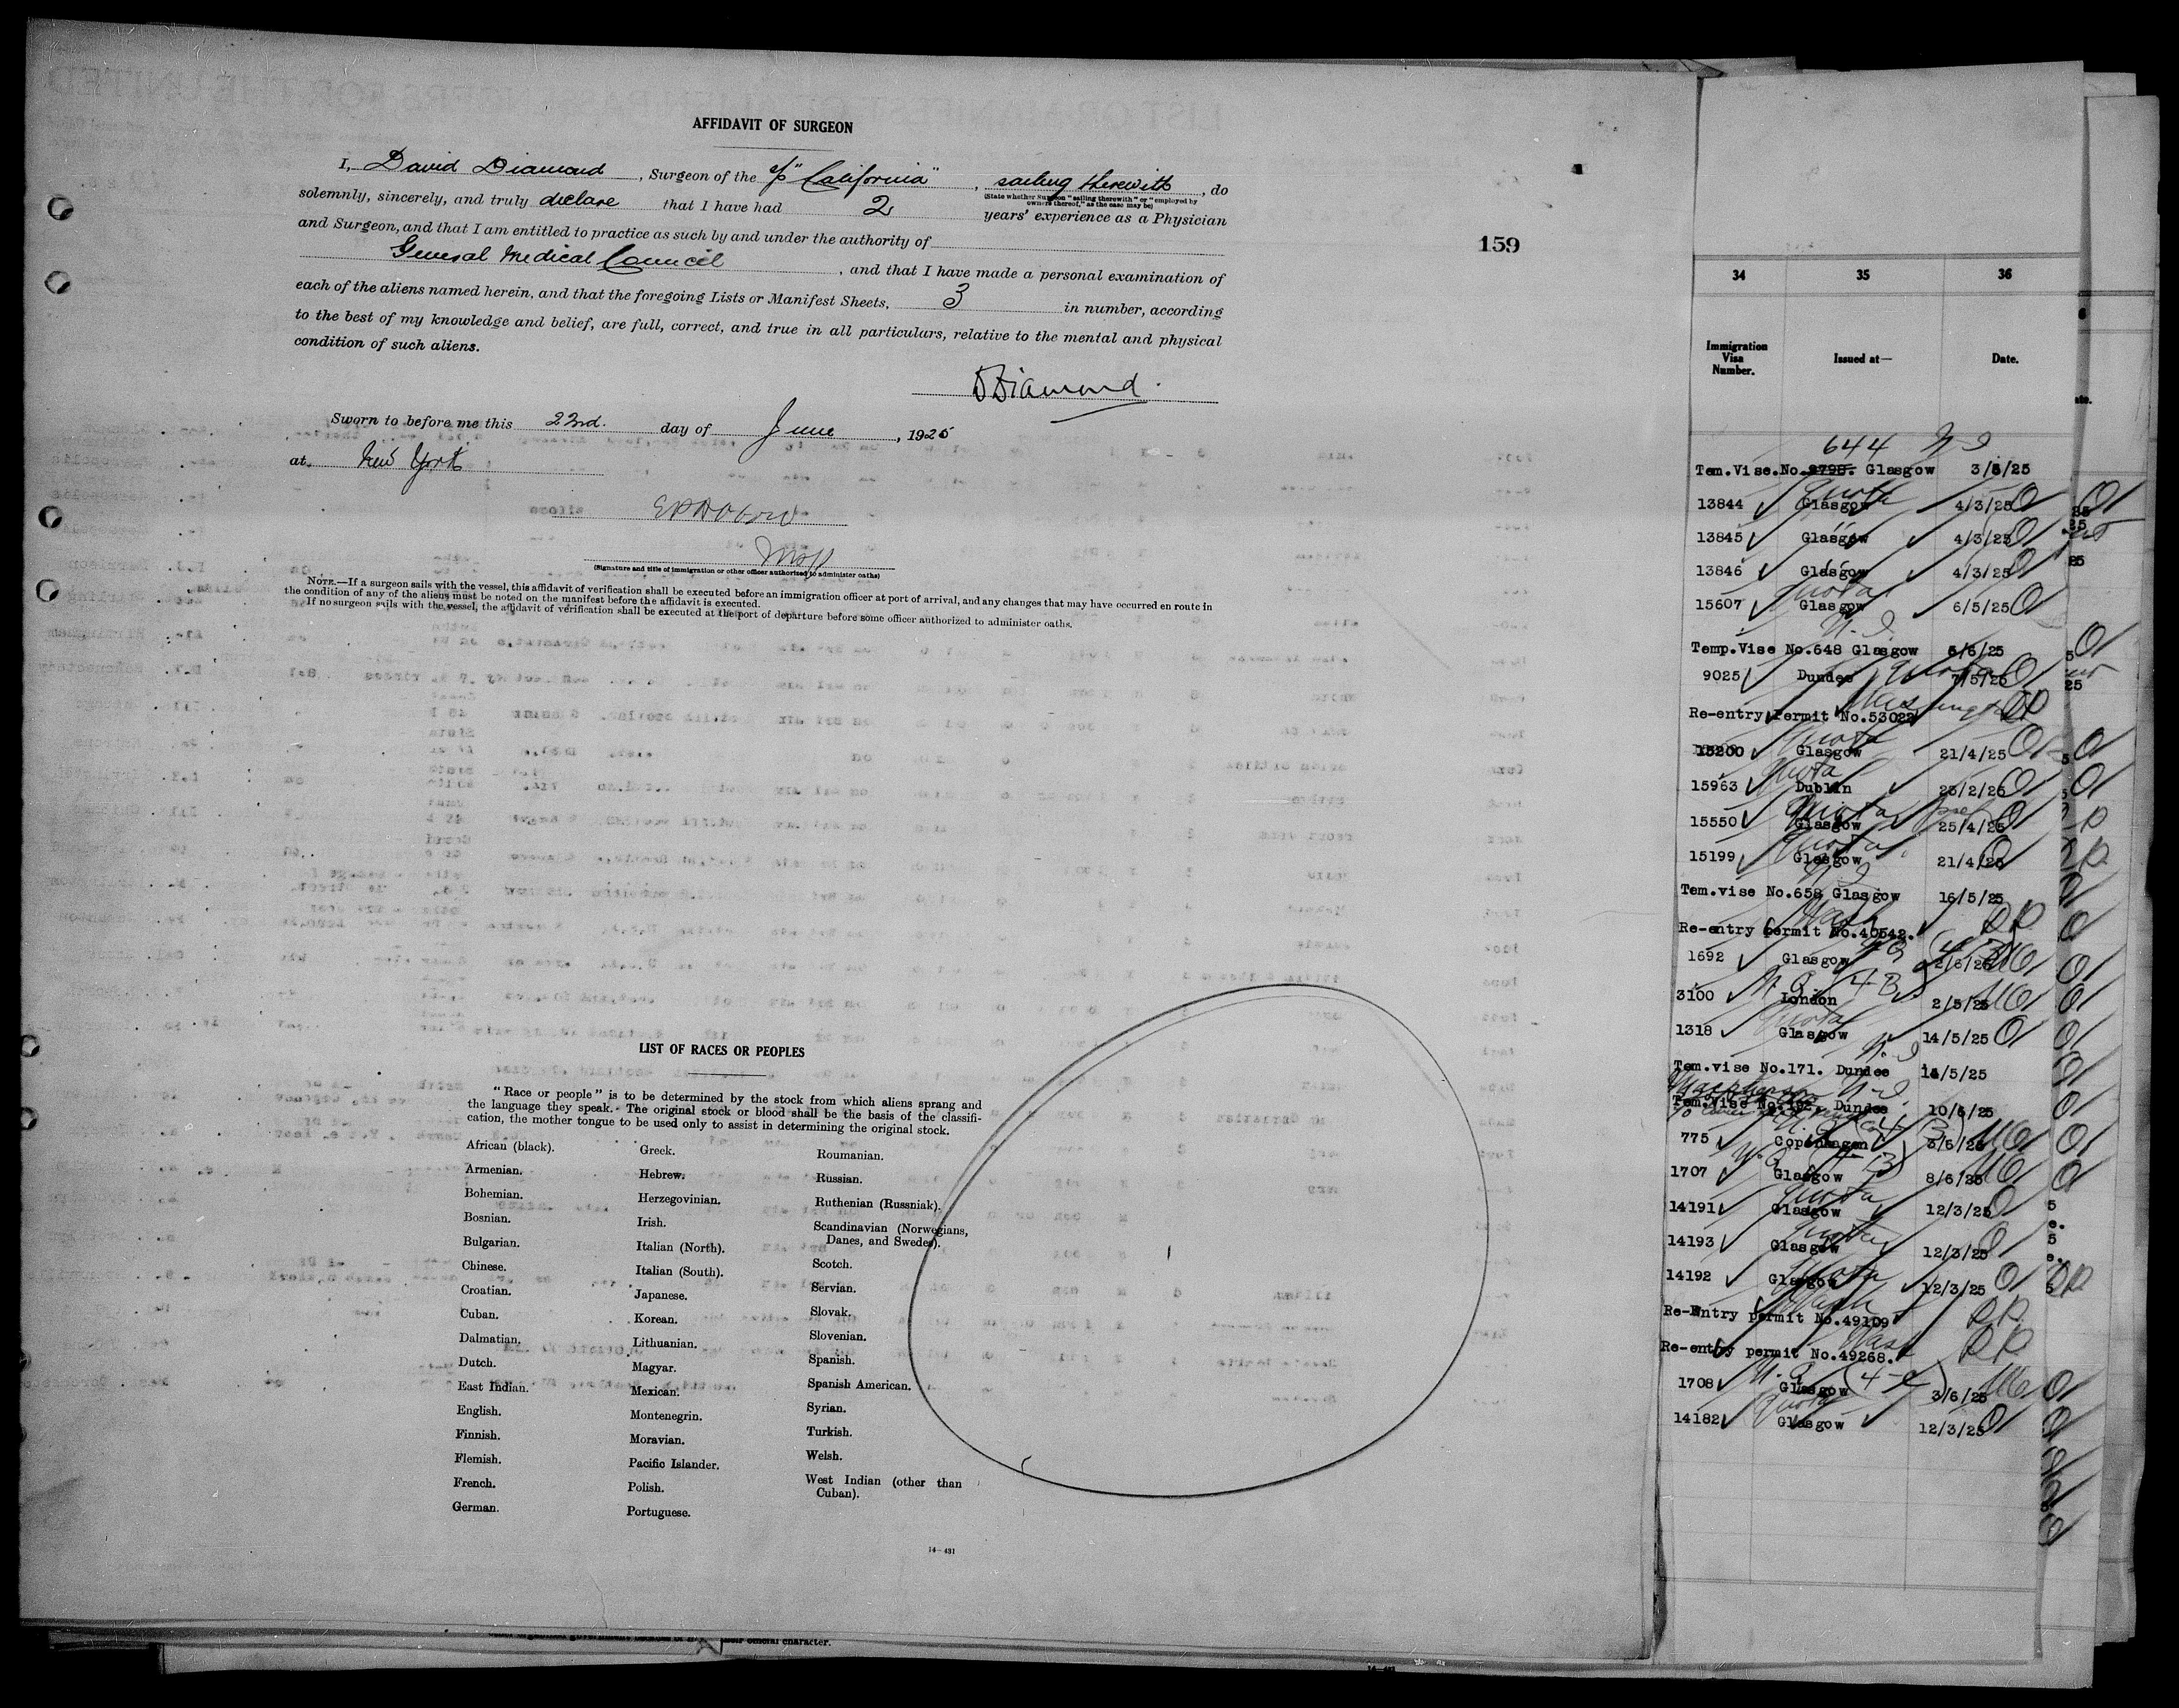 AFFIDAVIT OF SURGEON
I, David Diamond, Surgeon of the S/S "California", sailing therewith, do
(State whether Surgeon "sailing therewith" or "employed by
owners thereof," as the case may be)
solemnly, sincerely, and truly declare that I have had 2 years' experience as a Physician
and Surgeon, and that I am entitled to practice as such by and under the authority of
General Medical Council, and that I have made a personal examination of
each of the aliens named herein, and that the foregoing Lists or Manifest Sheets, 3 in number, according
to the best of my knowledge and belief, are full, correct, and true in all particulars, relative to the mental and physical
condition of such aliens.
DDiamond.
Sworn to before me this 22nd. day of June, 1925
at New York
Insp
(Signature and title of immigration or other officer authorized to administer oaths)
NOTE.—If a surgeon sails with the vessel, this affidavit of verification shall be executed before an immigration officer at port of arrival, and any changes that may have occurred en route in
the condition of any of the aliens must be noted on the manifest before the affidavit is executed.
If no surgeon sails with the vessel, the affidavit of verification shall be executed at the port of departure before some officer authorized to administer oaths.
159
LIST OF RACES OR PEOPLES
"Race or people" is to be determined by the stock from which aliens sprang and
the language they speak. The original stock or blood shall be the basis of the classifi-
cation, the mother tongue to be used only to assist in determining the original stock.
African (black).
Armenian.
Bohemian.
Bosnian.
Bulgarian.
Chinese.
Croatian.
Cuban.
Dalmatian.
Dutch.
East Indian.
English.
Finnish.
Flemish.
French.
German.
Greek.
Hebrew.
Herzegovinian.
Irish.
Italian (North).
Italian (South).
Japanese.
Korean.
Lithuanian.
Magyar.
Mexican.
Montenegrin.
Moravian.
Pacific Islander.
Polish.
Portuguese.
Roumanian.
Russian.
Ruthenian (Russniak).
Scandinavian (Norwegians,
Danes, and Swedes).
Scotch.
Servian.
Slovak.
Slovenian.
Spanish.
Spanish American.
Syrian.
Turkish.
Welsh.
West Indian (other than
Cuban).
14—431
34 35 36
Immigration
Visa
Number.
Issued at—
Date.
644 N I
Tem.Vise.No. 2798. Glasgow 3/6/25
13844 Quota Glasgow 4/3/25
13845 " Glasgow 4/3/25
13846 " Glasgow 4/3/25
15607 Quota Glasgow 6/5/25
N. I.
Temp.Vise No.648 Glasgow 6/6/25
9025 Dundee Quota 7/5/25
Washington
Re-entry Permit No.53022 RP
15200 Quota Glasgow 21/4/25
15963 Quota Dublin 25/2/25
15550 Quota Glasgow 25/4/25
15199 Quota Glasgow 21/4/25
N. I
Tem.vise No.658 Glasgow 16/5/25
Wash
Re-entry permit No.40542. RP
1692 Glasgow 2/6/25
3100 N. Q. (4-B) London 2/5/25
1318 Quota Glasgow 14/5/25
N. I
Tem.vise No.171. Dundee 14/5/25
N-I.
Tem.Vise Dundee 10/6/25
775 Copenhagen 5/25
1707 N. Q. Glasgow 8/6/25
14191 Quota Glasgow 12/3/25
14193 Quota Glasgow 12/3/25
14192 Quota Glasgow 12/3/25
Wash
Re-Entry permit No.49109 RP
Wash
Re-entry permit No.49268. RP
1708 N. Q. Glasgow 3/6/25
14182 Quota Glasgow 12/3/25
their official character.